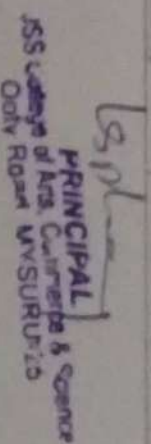 PRINCIPAL
JSS College of Arts, Commerce & Science
Ooty Road MYSURU-25